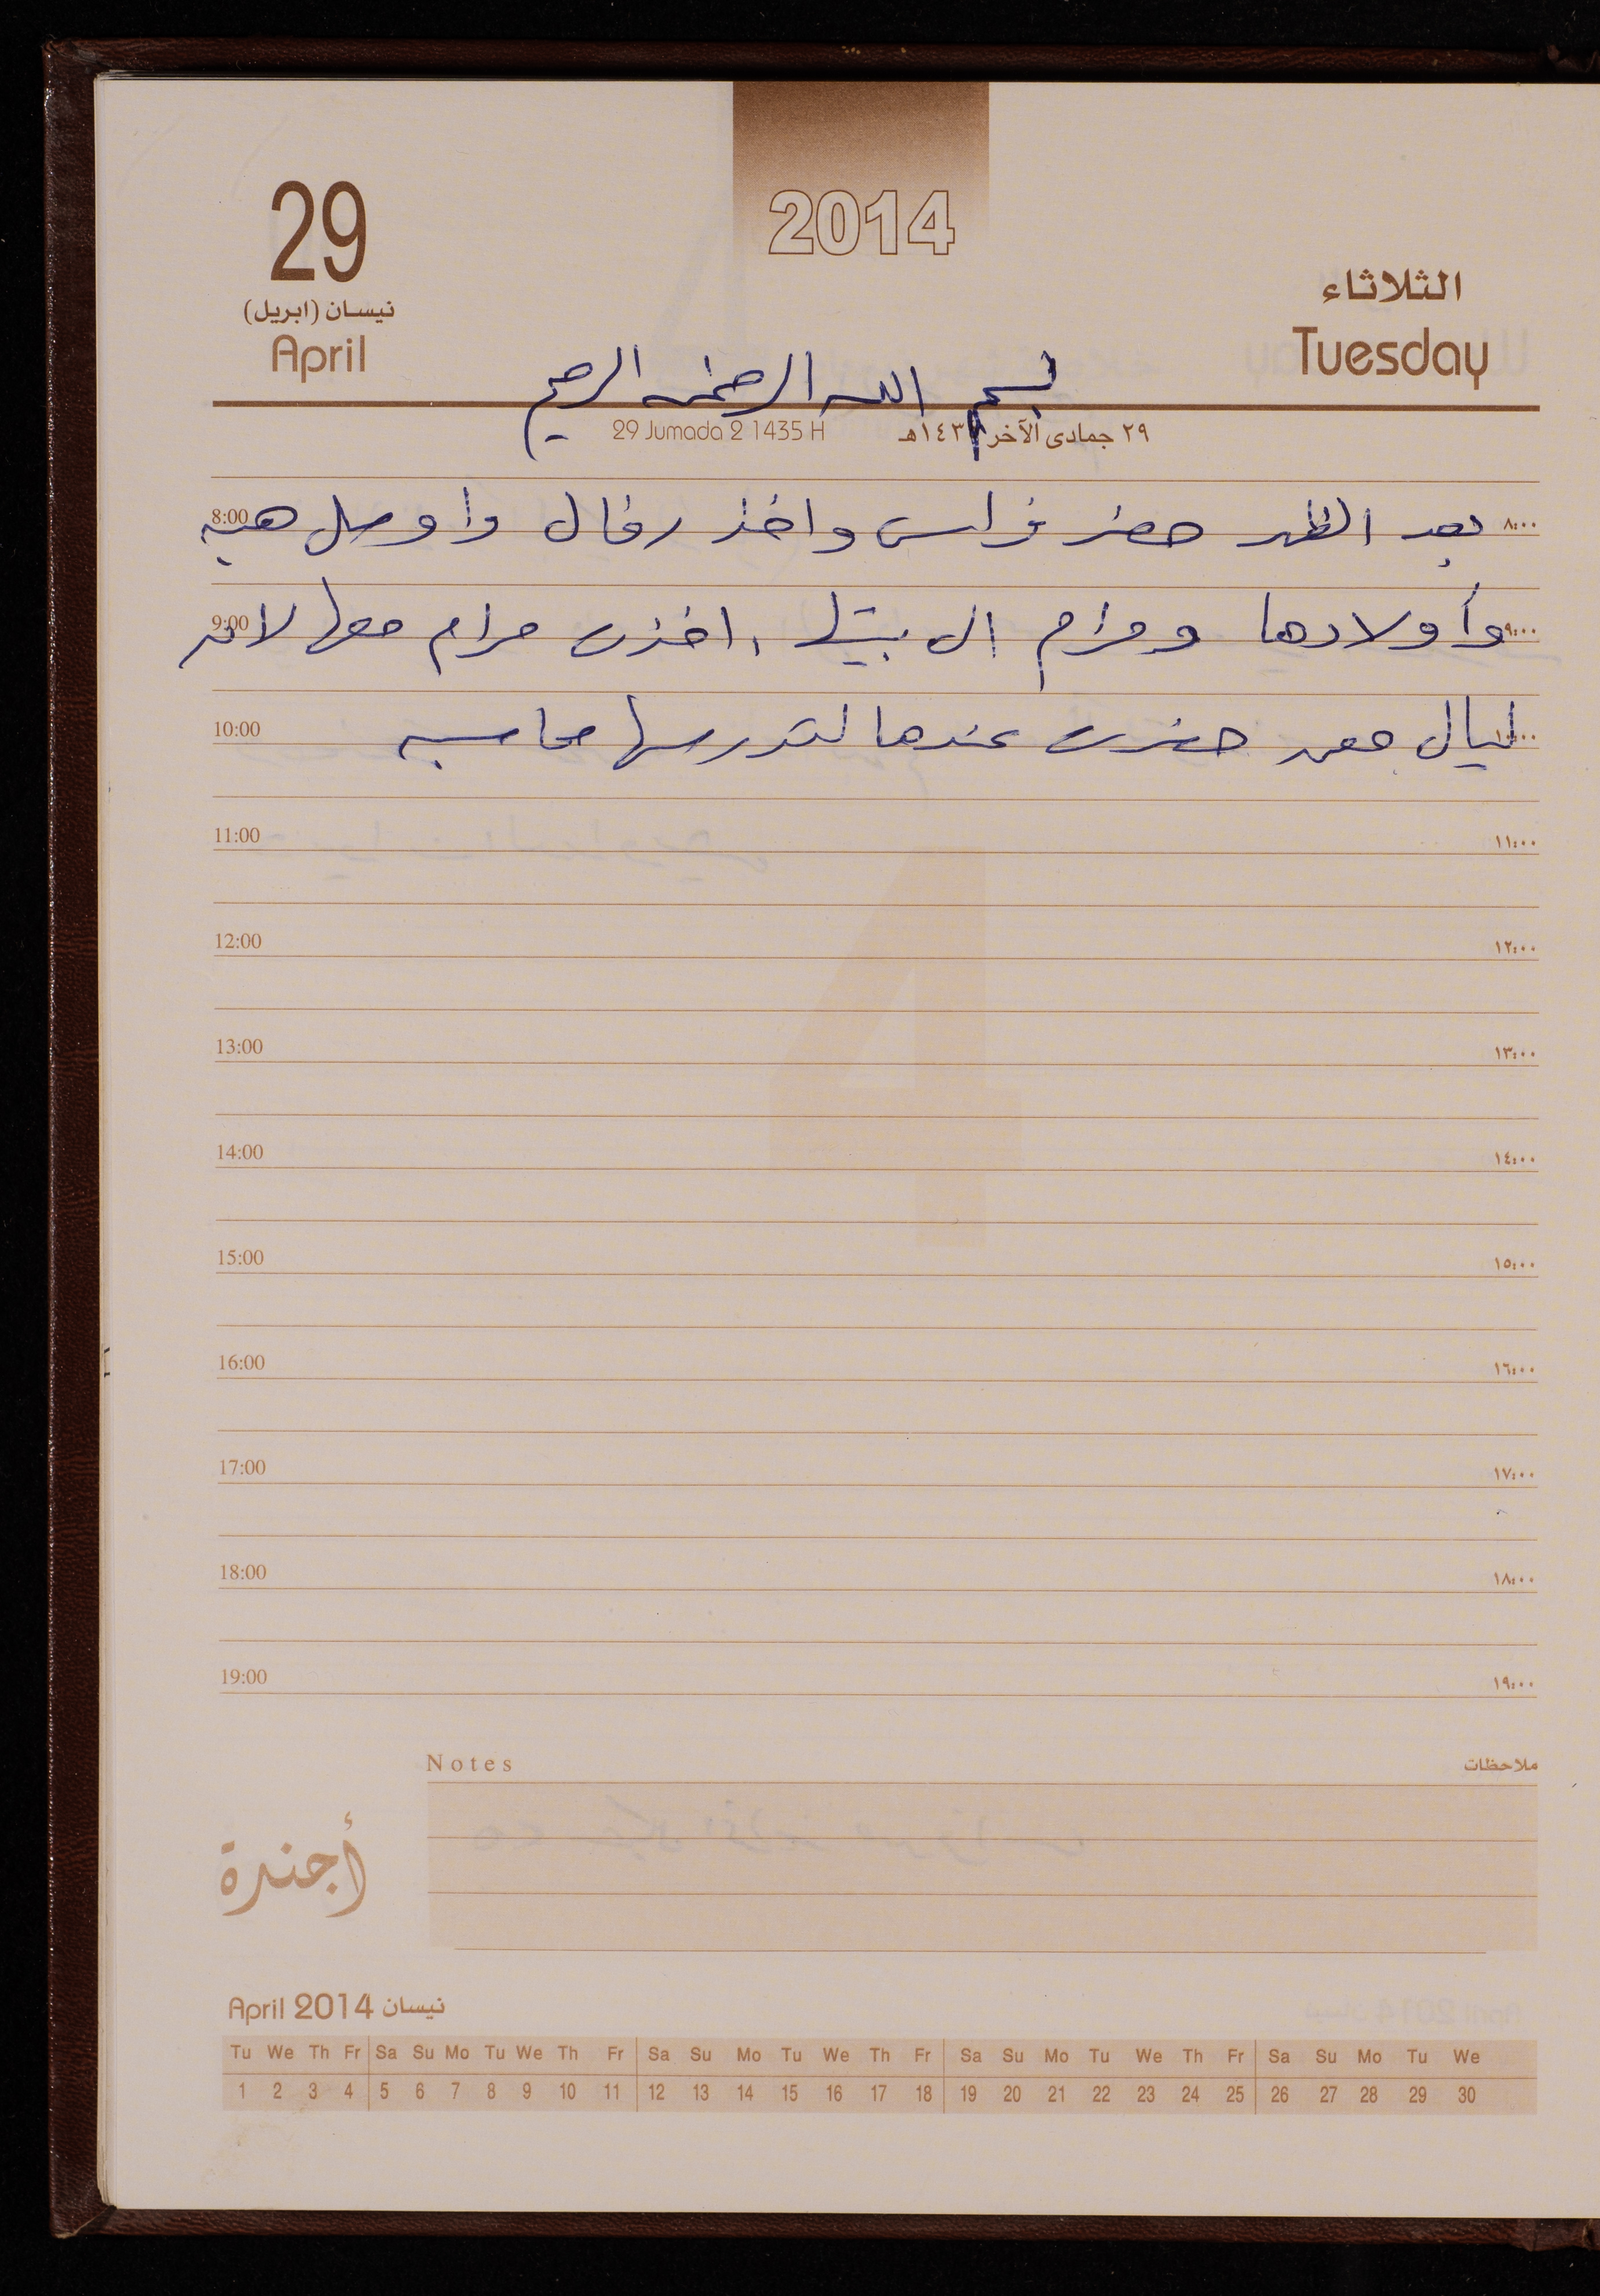 2014
29
نيسان (ابريل)
April
الثلاثاء
Tuesday
بسم الله الرحمن الرحيم
29 Jumada 2 1435 H
٢٩ جمادى الآخر ١٤٣ هـ
8:00 بعد الظهر حضر فراس واخذ رفال واوصل هبه ٨:٠٠
9:00 وأولادها ومرام الى بيتها، اخذت مرام معها لانه ٩:٠٠
10:00 ليال حضرت عندها لتدرسها محاسبه
11:00 ١١:٠٠
12:00 ١٢:٠٠
13:00 ١٣:٠٠
14:00 ١٤:٠٠
15:00 ١٥:٠٠
16:00 ١٦:٠٠
17:00 ١٧:٠٠
18:00 ١٨:٠٠
19:00 ١٩:٠٠
Notes ملاحظات
أجندة
April 2014 نيسان
Tu We Th Fr Sa Su Mo Tu We Th Fr Sa Su Mo Tu We Th Fr Sa Su Mo Tu We Th Fr Sa Su Mo Tu We
1 2 3 4 5 6 7 8 9 10 11 12 13 14 15 16 17 18 19 20 21 22 23 24 25 26 27 28 29 30